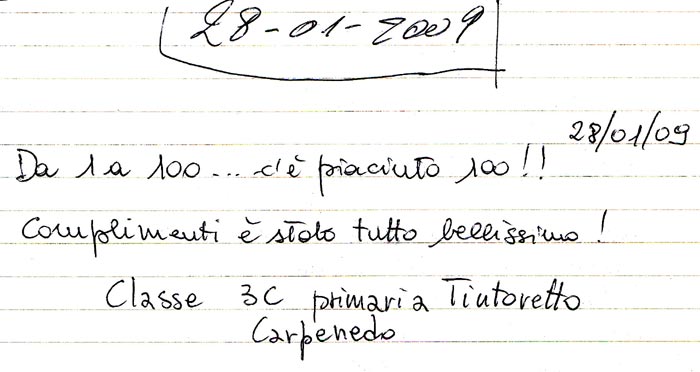 28-01-2009
28/01/09
Da 1 a 100... c'è piaciuto 100!!
Complimenti è stato tutto bellissimo!
Classe 3C primaria Tintoretto
Carpenedo